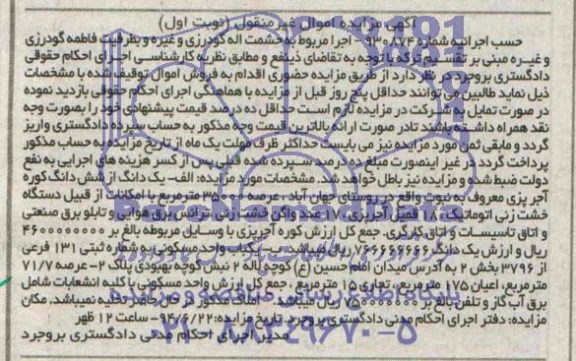 آگهی مزایده اموال غیرمنقول (نوبت اول)
حسب اجرائیه شماره ۹۳۰۸۷۴ اجرا مربوط به حشمت اله گودرزی و غیره و بطرفیت فاطمه گودرزی
و غیره مبنی بر تقسیم ترکه با توجه به تقاضای ذینفع و مطابق نظریه کارشناسی اجرای احکام حقوقی
دادگستری بروجرد در نظر دارد از طریق مزایده حضوری اقدام به فروش اموال توقیف شده با مشخصات
ذیل نماید طالبین می توانند حداقل پنج روز قبل از مزایده با هماهنگی اجرای احکام حقوقی بازدید نموده
در صورت تمایل به شرکت در مزایده لازم است حداقل ده درصد قیمت پیشنهادی خود را بصورت وجه
نقد همراه داشته باشند تا در صورت ارائه بالاترین قیمت وجه مذکور به حساب سپرده دادگستری واریز
گردد و مابقی ثمن مورد مزایده نیز می بایست حداکثر ظرف مهلت یک ماه از تاریخ مزایده به حساب مذکور
پرداخت گردد در غیر اینصورت مبلغ ده درصد سپرده شده قبلی پس از کسر هزینه های اجرایی به نفع
دولت ضبط شده و مزایده نیز باطل خواهد شد. مشخصات مورد مزایده: الف- یک دانگ از شش دانگ کوره
آجر پزی معروف به نبوت واقع در روستای جهان آباد، عرصه ۳۵۰۰۰ مترمربع با امکانات از قبیل دستگاه
خشت زنی اتوماتیک، ۱۸ قمیل آجرپزی، واگن خشت زنی ترانس برق هوایی و تابلو برق صنعتی
و اتاق تاسیسات و اتاق کارگری. جمع کل ارزش کوره آجرپزی با وسایل مربوطه بالغ بر ۴۶۰۰۰۰۰۰۰۰
ریال و ارزش یک دانگ ۷۶۶۶۶۶۶۶۶ ریال میباشد ب- یکباب واحد مسکونی به شماره ثبتی ۱۳۱ فرعی
از ۳۷۹۶ بخش ۲ به آدرس میدان امام حسین (ع) کوچه لاله ۲ نبش کوچه بهبودی پلاک ۲- عرصه ۷۱/۷
مترمربع، اعیان ۱۷۵ مترمربع، تجاری ۱۵ مترمربع، جمع کل ارزش واحد مسکونی با کلیه انشعابات شامل
برق آب گاز و تلفن بالغ بر ریال میباشد - املاک مذکور در رهن حاضر تخلیه نمیباشد. مکان
مزایده: دفتر اجرای احکام مدنی دادگستری بروجرد تاریخ مزایده: ۹۴/۶/۲۲- ساعت ۱۲ ظهر
مدیر اجرای احکام مدنی دادگستری بروجرد
۰۲۱-۸۸۳۴۹۶۷۰-۵